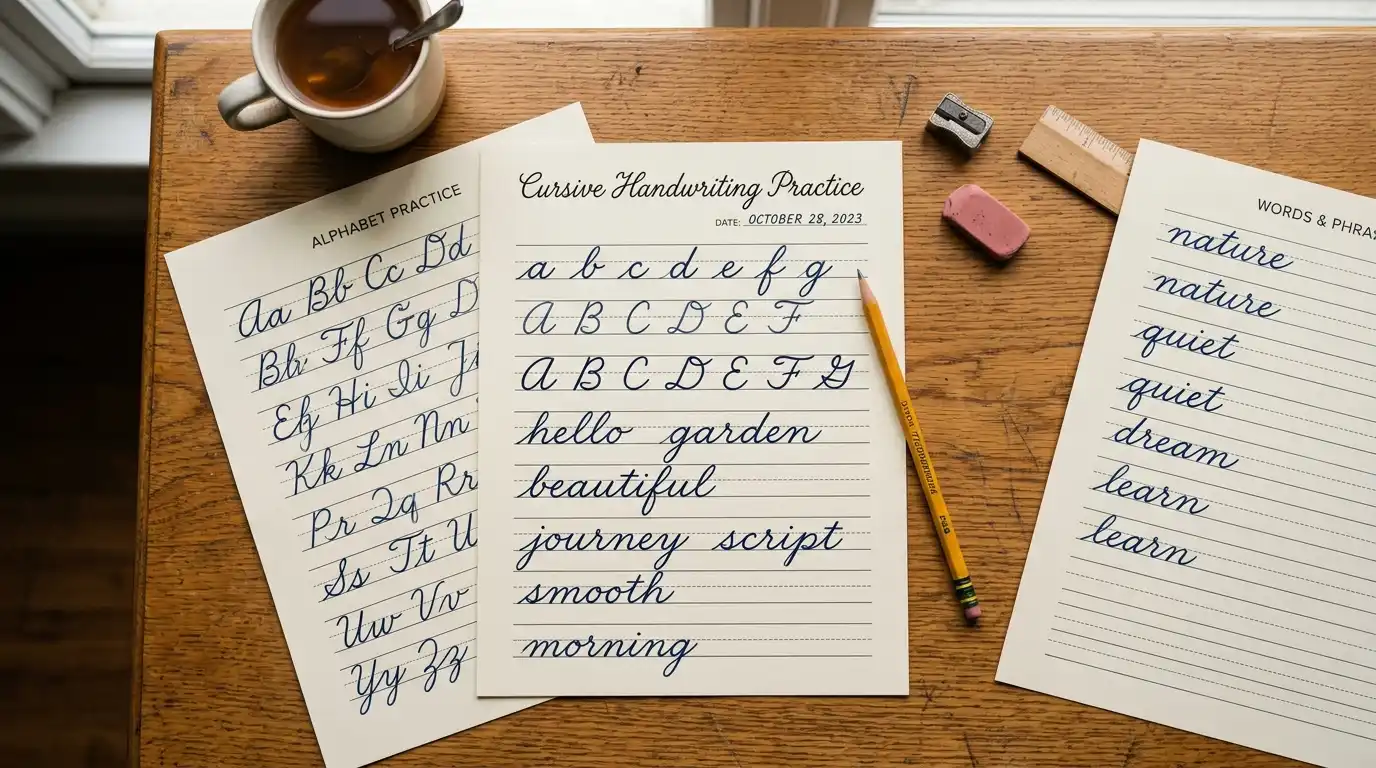 ALPHABET PRACTICE
Aa Bb Cc Dd
Bb Ff Gg D
Hi Ii
Kk Ln Nn
Pr Qq Rr
Ss Tt U
Uw Vv
Yy Zz
Cursive Handwriting Practice
DATE: OCTOBER 28, 2023
a b c d e f g
A B C D E F
A B C D E F G
hello garden
beautiful
journey script
smooth
morning
WORDS & PHRA
nature
nature
quiet
quiet
dream
learn
learn